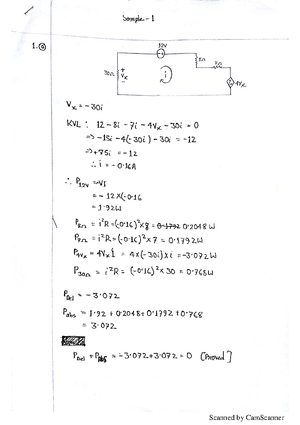 Sample - 1
1.(a)
12V
8Ω
7Ω
30Ω
+
Vx
-
i
4Vx
Vx = -30i
KVL : 12 - 8i - 7i - 4Vx - 30i = 0
⇒ -15i - 4(-30i) - 30i = -12
⇒ +75i = -12
∴ i = -0.16A
∴ P12V = VI
= -12×(-0.16
= 1.92W
P8Ω = i²R = (-0.16)²×8 = 0.1792 0.2048W
P7Ω = i²R = (-0.16)²×7 = 0.1792W
P4Vx = 4Vx i = 4×(-30i)×i = -3.072W
P30Ω = i²R = (-0.16)²×30 = 0.768W
Pdel = -3.072
Pabs = 1.92 + 0.2048 + 0.1792 + 0.768
= 3.072
Pdel + Pabs = -3.072 + 3.072 = 0 [Proved]
Scanned by CamScanner